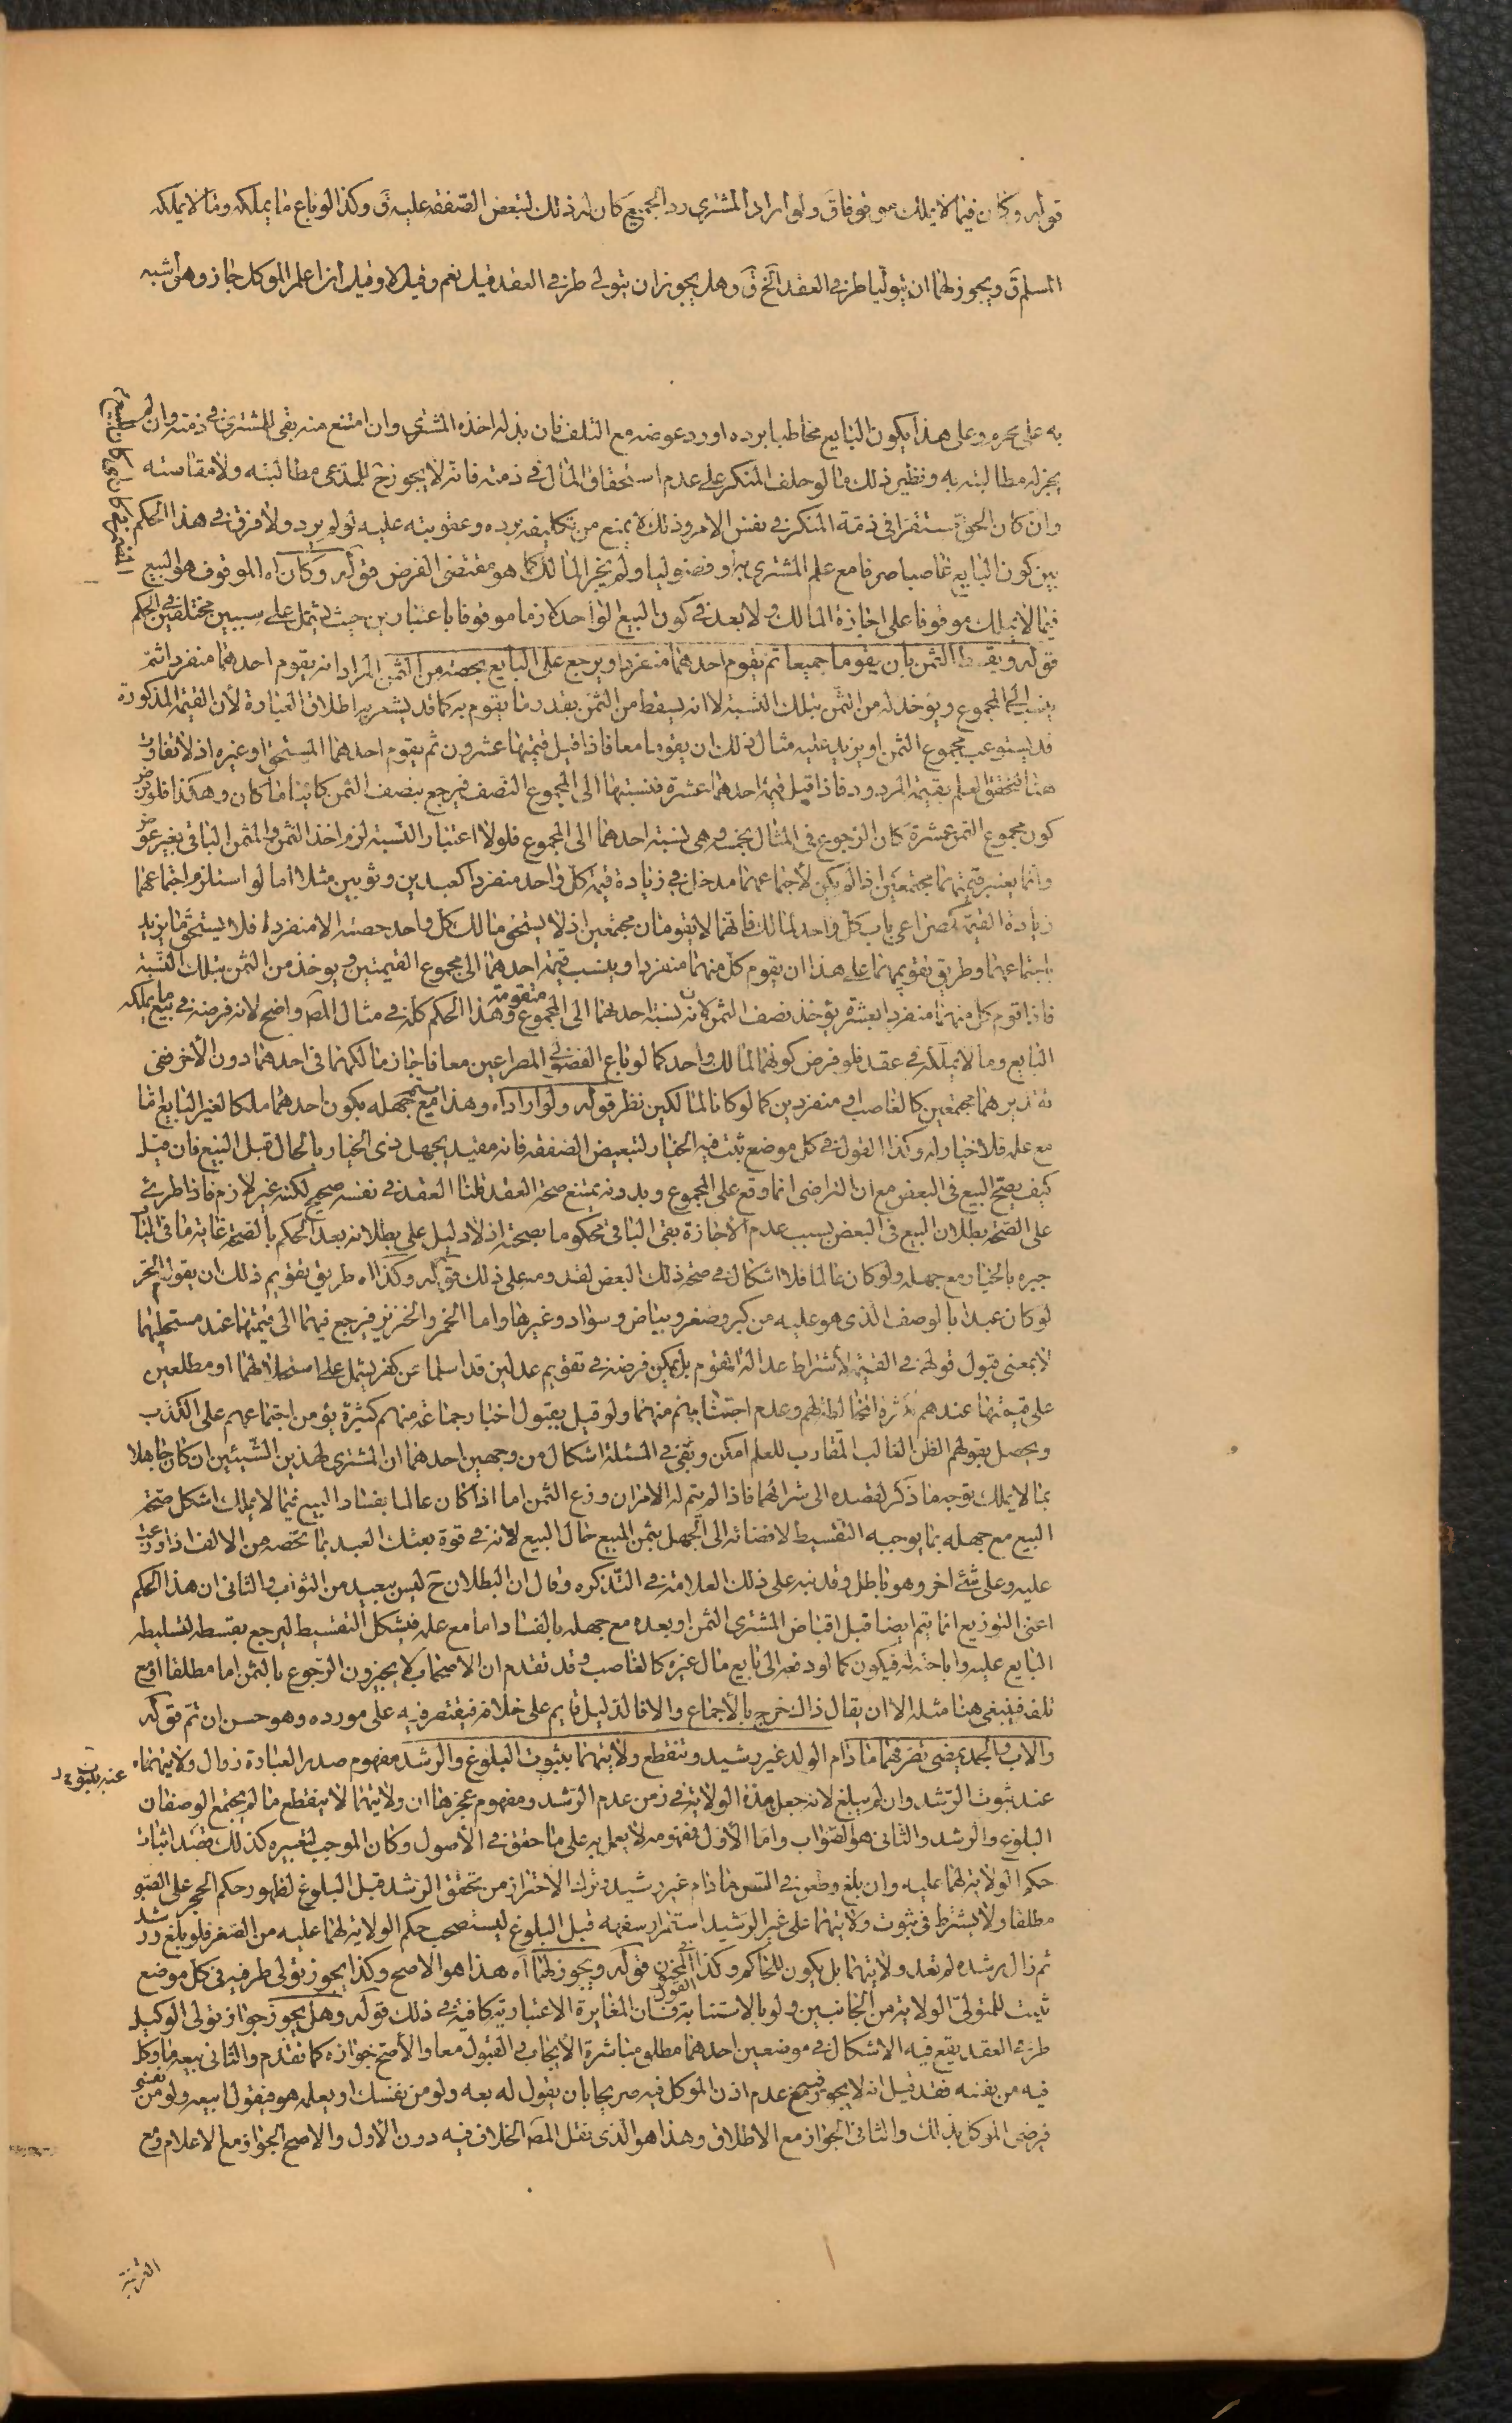 قوله وكان فيما لا يملك موقوفا ق ولو اراد المشتري رد الجميع كان له ذلك لتبعض الصفقة عليه ق وكذا لو باع ما يملكه وما لا يملكه
المسلم ق ويجوز لهما ان يتوليا طرفي العقد الخ ق وهل يجوز ان يتولى طرفي العقد قيل نعم وقيل لا وقيل اذا علم الموكل جاز وهو اشبه
به على محرم وعلى هذا يكون البايع مخاطبا برده او رد عوضه مع التلف فان بذله اخذه المشتري وان امتنع منه بقي للمشتري في ذمته وان لم
يجز له مطالبته به ونظير ذلك ما لو حلف المنكر على عدم استحقاق المال في ذمته فانه لا يجوز ح للمدعي مطالبته ولا مقاصته
وان كان الحق مستقرا في ذمة المنكر في نفس الامر وذلك لا يمنع من تكليفه برده وعقوبته عليه لو لم يرد ولا فرق في هذا الحكم
بين كون البايع غاصبا صرفا مع علم المشتري به او فضوليا ولم يجز المالك كما هو مقتضى الفرض قوله وكان اه الموقوف هو البيع
فيما لا يملك موقوفا على اجازة المالك ولا بعد في كون البيع الواحد لازما موقوفا باعتبارين حيث يشتمل على سببين مختلفين في الحكم
قوله ويقسط الثمن بان يقوما جميعا ثم يقوم احدهما منفردا ويرجع على البايع بحصته من الثمن المراد انه يقوم احدهما منفردا ثم
ينسب الى المجموع ويؤخذ له من الثمن بتلك النسبة لا انه يسقط من الثمن بقدر ما يقوم به كما قد يشعر به اطلاق العبارة لان القيمة المذكورة
قد يستوعب مجموع الثمن او يزيد عليه مثال ذلك ان يقوما معا فاذا قيل قيمتهما عشرون ثم يقوم احدهما المستحق او غيره اذ لا تفاوت
هنا لتحقق العلم بقيمة المردود فاذا قيل قيمة احدهما عشرة فنسبتها الى المجموع النصف فيرجع بنصف الثمن كائنا ما كان وهكذا فلو فرض
كون مجموع الثمن عشرة كان الرجوع في المثال بخمسة وهي نسبة احدهما الى المجموع فلولا اعتبار النسبة لزم اخذ الثمن والمثمن الباقي بغير عوض
وانما يعتبر قيمتهما مجتمعين اذا لم يكن لاجتماعهما مدخل في زيادة قيمة كل واحد منفردا كعبدين وثوبين مثلا اما لو استلزم اجتماعهما
زيادة القيمة كمصراعي باب كل واحد لمالك فانهما لا يقومان مجتمعين اذ لا يستحق مالك كل واحد حصته الا منفردة فلا يستحق ما يزيد
باجتماعهما وطريق تقويمهما على هذا ان يقوم كل منهما منفردا وينسب قيمة احدهما الى مجموع القيمتين ويؤخذ من الثمن بتلك النسبة
فاذا قوم كل منهما منفردا بعشرة يؤخذ نصف الثمن لانه نسبة احدهما الى المجموع وهذا الحكم كله في مثال المص واضح لانه فرضه في بيع ما يملكه
البايع وما لا يملكه في عقد فلو فرض كونهما لمالك واحد كما لو باع الفضولي المصراعين معا فاجاز مالكهما في احدهما دون الآخر ففي
تقديرهما مجتمعين كالغاصب او منفردين كما لو كانا لمالكين نظر قوله ولو اراد اه وهذا مع جهله بكون احدهما ملكا لغير البايع اما
مع علمه فلا خيار له وكذا القول في كل موضع يثبت فيه الخيار لتبعيض الصفقة فانه مقيد بجهل ذي الخيار بالحال قبل البيع فان قيل
كيف يصح البيع في البعض مع ان التراضي انما وقع على المجموع وبدونه يمتنع صحة العقد قلنا العقد في نفسه صحيح لكنه غير لازم فاذا طرئ
على الصحة بطلان البيع في البعض بسبب عدم الاجازة بقي الباقي محكوما بصحته اذ لا دليل على بطلانه بعد الحكم بالصحة غاية ما في الباب
جبره بالخيار مع جهله ولو كان عالما فلا اشكال في صحة ذلك البعض لقدومه على ذلك قوله وكذا اه طريق تقويم ذلك ان يقوم الحر
لو كان عبدا بالوصف الذي هو عليه من كبر وصغر وبياض وسواد وغيرها واما الخمر والخنزير فيرجع فيهما الى قيمتهما عند مستحليهما
لا بمعنى قبول قولهم في القيمة لاشتراط عدالة المقوم بل يمكن فرضه في تقويم عدلين قد اسلما عن كفر يشتمل على استحلالهما او مطلعين
على قيمتهما عندهم لكثرة المخالطة لهم وعدم اجتنابهم منهما ولو قيل بقبول اخبار جماعة منهم كثيرة يؤمن اجتماعهم على الكذب
ويحصل بقولهم الظن الغالب المقارب للعلم امكن وبقي في المسئلة اشكال من وجهين احدهما ان المشتري لهذين الشيئين ان كان جاهلا
بما لا يملك توجه ما ذكر لقصده الى شرائهما فاذا لم يتم له الامران وزع الثمن اما اذا كان عالما بفساد البيع فيما لا يملك اشكل صحة
البيع مع جهله بما يوجبه التقسيط لافضائه الى الجهل بثمن المبيع حال البيع لانه في قوة بعتك العبد بما يخصه من الالف اذا وزعت
عليه وعلى شئ اخر وهو باطل وقد نبه على ذلك العلامة في التذكره وقال ان البطلان ح ليس ببعيد من الثواب والثاني ان هذا الحكم
اعني التوزيع انما يتم ايضا قبل اقباض المشتري الثمن او بعده مع جهله بالفساد اما مع علمه فيشكل التقسيط ليرجع بقسطه لتسليطه
البايع عليه واباحته له فيكون كما لو دفعه الى بايع مال غيره كالغاصب وقد تقدم ان الاصحاب لا يجيزون الرجوع بالثمن اما مطلقا او مع
تلفه فينبغي هنا مثله الا ان يقال ذاك خرج بالاجماع والا فالدليل قايم على خلافه فيقتصر فيه على مورده وهو حسن ان تم قوله
والاب والجد يمضي تصرفهما ما دام الولد غير رشيد وتنقطع ولايتهما بثبوت البلوغ والرشد مفهوم صدر العبارة زوال ولايتهما
عند ثبوت الرشد وان لم يبلغ لانه جعل هذه الولاية في زمن عدم الرشد ومفهوم عجزها ان ولايتهما لا ينقطع ما لم يجتمع الوصفان
البلوغ والرشد والثاني هو الصواب واما الاول فمفهومه لا يعمل به على ما حقق في الاصول وكان الموجب لتعبيره كذلك قصد اثبات
حكم الولاية لهما عليه وان بلغ وطعن في السن ما دام غير رشيد وترك الاحتراز من تحقق الرشد قبل البلوغ لظهور حكم الحجر على الصبي
مطلقا ولا يشترط في ثبوت ولايتهما على غير الرشيد استمرار سفهه قبل البلوغ ليستصحب حكم الولاية لهما عليه من الصغر فلو بلغ ورشد
ثم زال رشده لم تعد ولايتهما بل يكون للحاكم وكذا القول في المجنون قوله ويجوز لهما اه هذا هو الاصح وكذا يجوز تولى طرفيه في كل موضع
ثبت للمتولي الولاية من الجانبين ولو بالاستنابة فان المغايرة الاعتبارية كافية في ذلك قوله وهل يجوز جواز تولى الوكيل
طرفي العقد يقع فيه الاشكال في موضعين احدهما مطلق مباشرة الايجاب والقبول معا والاصح جوازه كما تقدم والثاني بيعه ما وكل
فيه من نفسه فقد قيل انه لا يجوز مع عدم اذن الموكل فيه صريحا بان يقول له بعه ولو من نفسك او يعلمه هو فيقول ابيعه ولو من نفسي
فرضي الموكل بذلك والثاني الجواز مع الاطلاق وهذا هو الذي نقل المص الخلاف فيه دون الاول والاصح الجواز مع الاعلام ومع
القرينة